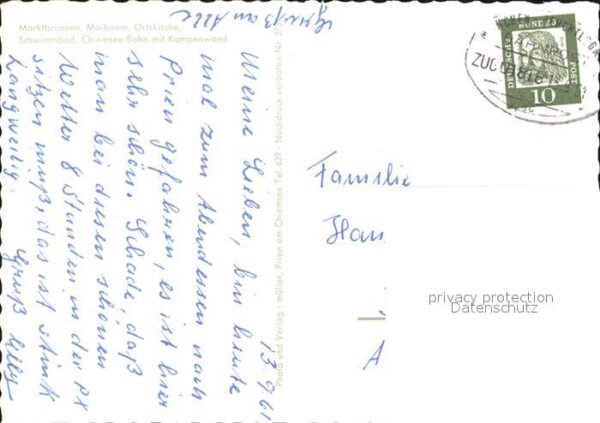 Marktbrunnen, Maibaum, Ortskirche,
Schwimmbad, Chiemsee-Bahn mit Kampenwand
Gruß an Alle
13.9.61
Meine Lieben, bin heute
mal zum Abendessen nach
Prien gefahren, es ist hier
sehr schön. Schade, daß
man bei diesem schönen
Wetter 8 Stunden in der
sitzen muß, das ist stink
langweilig. Gruß Lilly
Photo und Verlag - müller, Prien am Chiemsee Tel. 639 · Nachdruck verboten Nr.
DEUTSCHE BUNDESPOST
10
ZUG
Familie
Han
A
privacy protection
Datenschutz